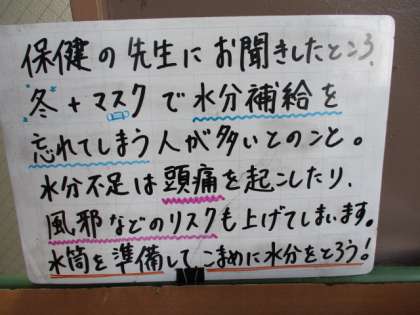 保健の先生にお聞きしたところ、
冬+マスクで水分補給を
忘れてしまう人が多いとのこと。
水分不足は頭痛を起こしたり、
風邪などのリスクも上げてしまいます。
水筒を準備してこまめに水分をとろう!